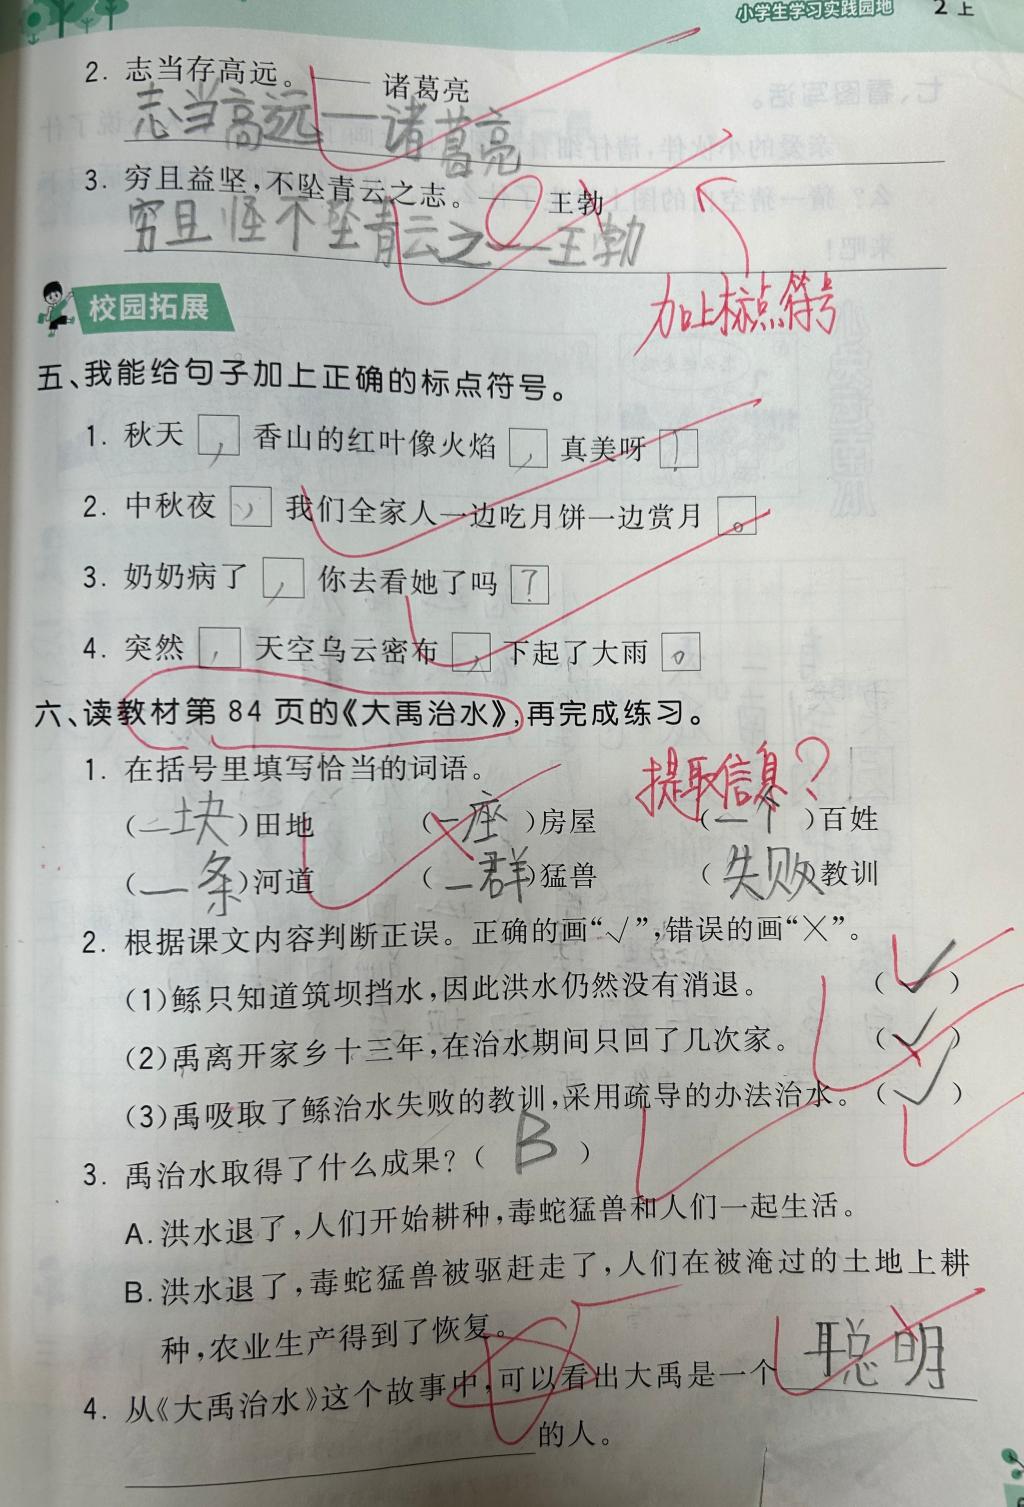 小学生学习实践园地 2上
2. 志当存高远。—— 诸葛亮
志当高远——诸葛亮
3. 穷且益坚,不坠青云之志。—— 王勃
穷且怪不坠青云之——王勃
加上标点符号
校园拓展
五、我能给句子加上正确的标点符号。
1. 秋天 , 香山的红叶像火焰 , 真美呀 !
2. 中秋夜 , 我们全家人一边吃月饼一边赏月 。
3. 奶奶病了 , 你去看她了吗 ?
4. 突然 , 天空乌云密布 , 下起了大雨 。
六、读教材第84页的《大禹治水》,再完成练习。
1. 在括号里填写恰当的词语。
提取信息?
(一块)田地 (一座)房屋 (一个)百姓
(一条)河道 (一群)猛兽 (失败)教训
2. 根据课文内容判断正误。正确的画“√”,错误的画“×”。
(1)鲧只知道筑坝挡水,因此洪水仍然没有消退。 (√)
(2)禹离开家乡十三年,在治水期间只回了几次家。 (√)
(3)禹吸取了鲧治水失败的教训,采用疏导的办法治水。(√)
3. 禹治水取得了什么成果?( B )
A. 洪水退了,人们开始耕种,毒蛇猛兽和人们一起生活。
B. 洪水退了,毒蛇猛兽被驱赶走了,人们在被淹过的土地上耕
种,农业生产得到了恢复。
4. 从《大禹治水》这个故事中,可以看出大禹是一个 聪明
的人。